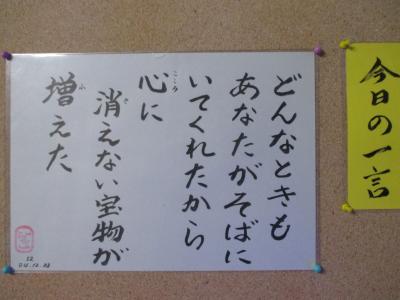 今日の一言
どんなときも
あなたがそばに
いてくれたから
心に
消えない宝物が
増えた